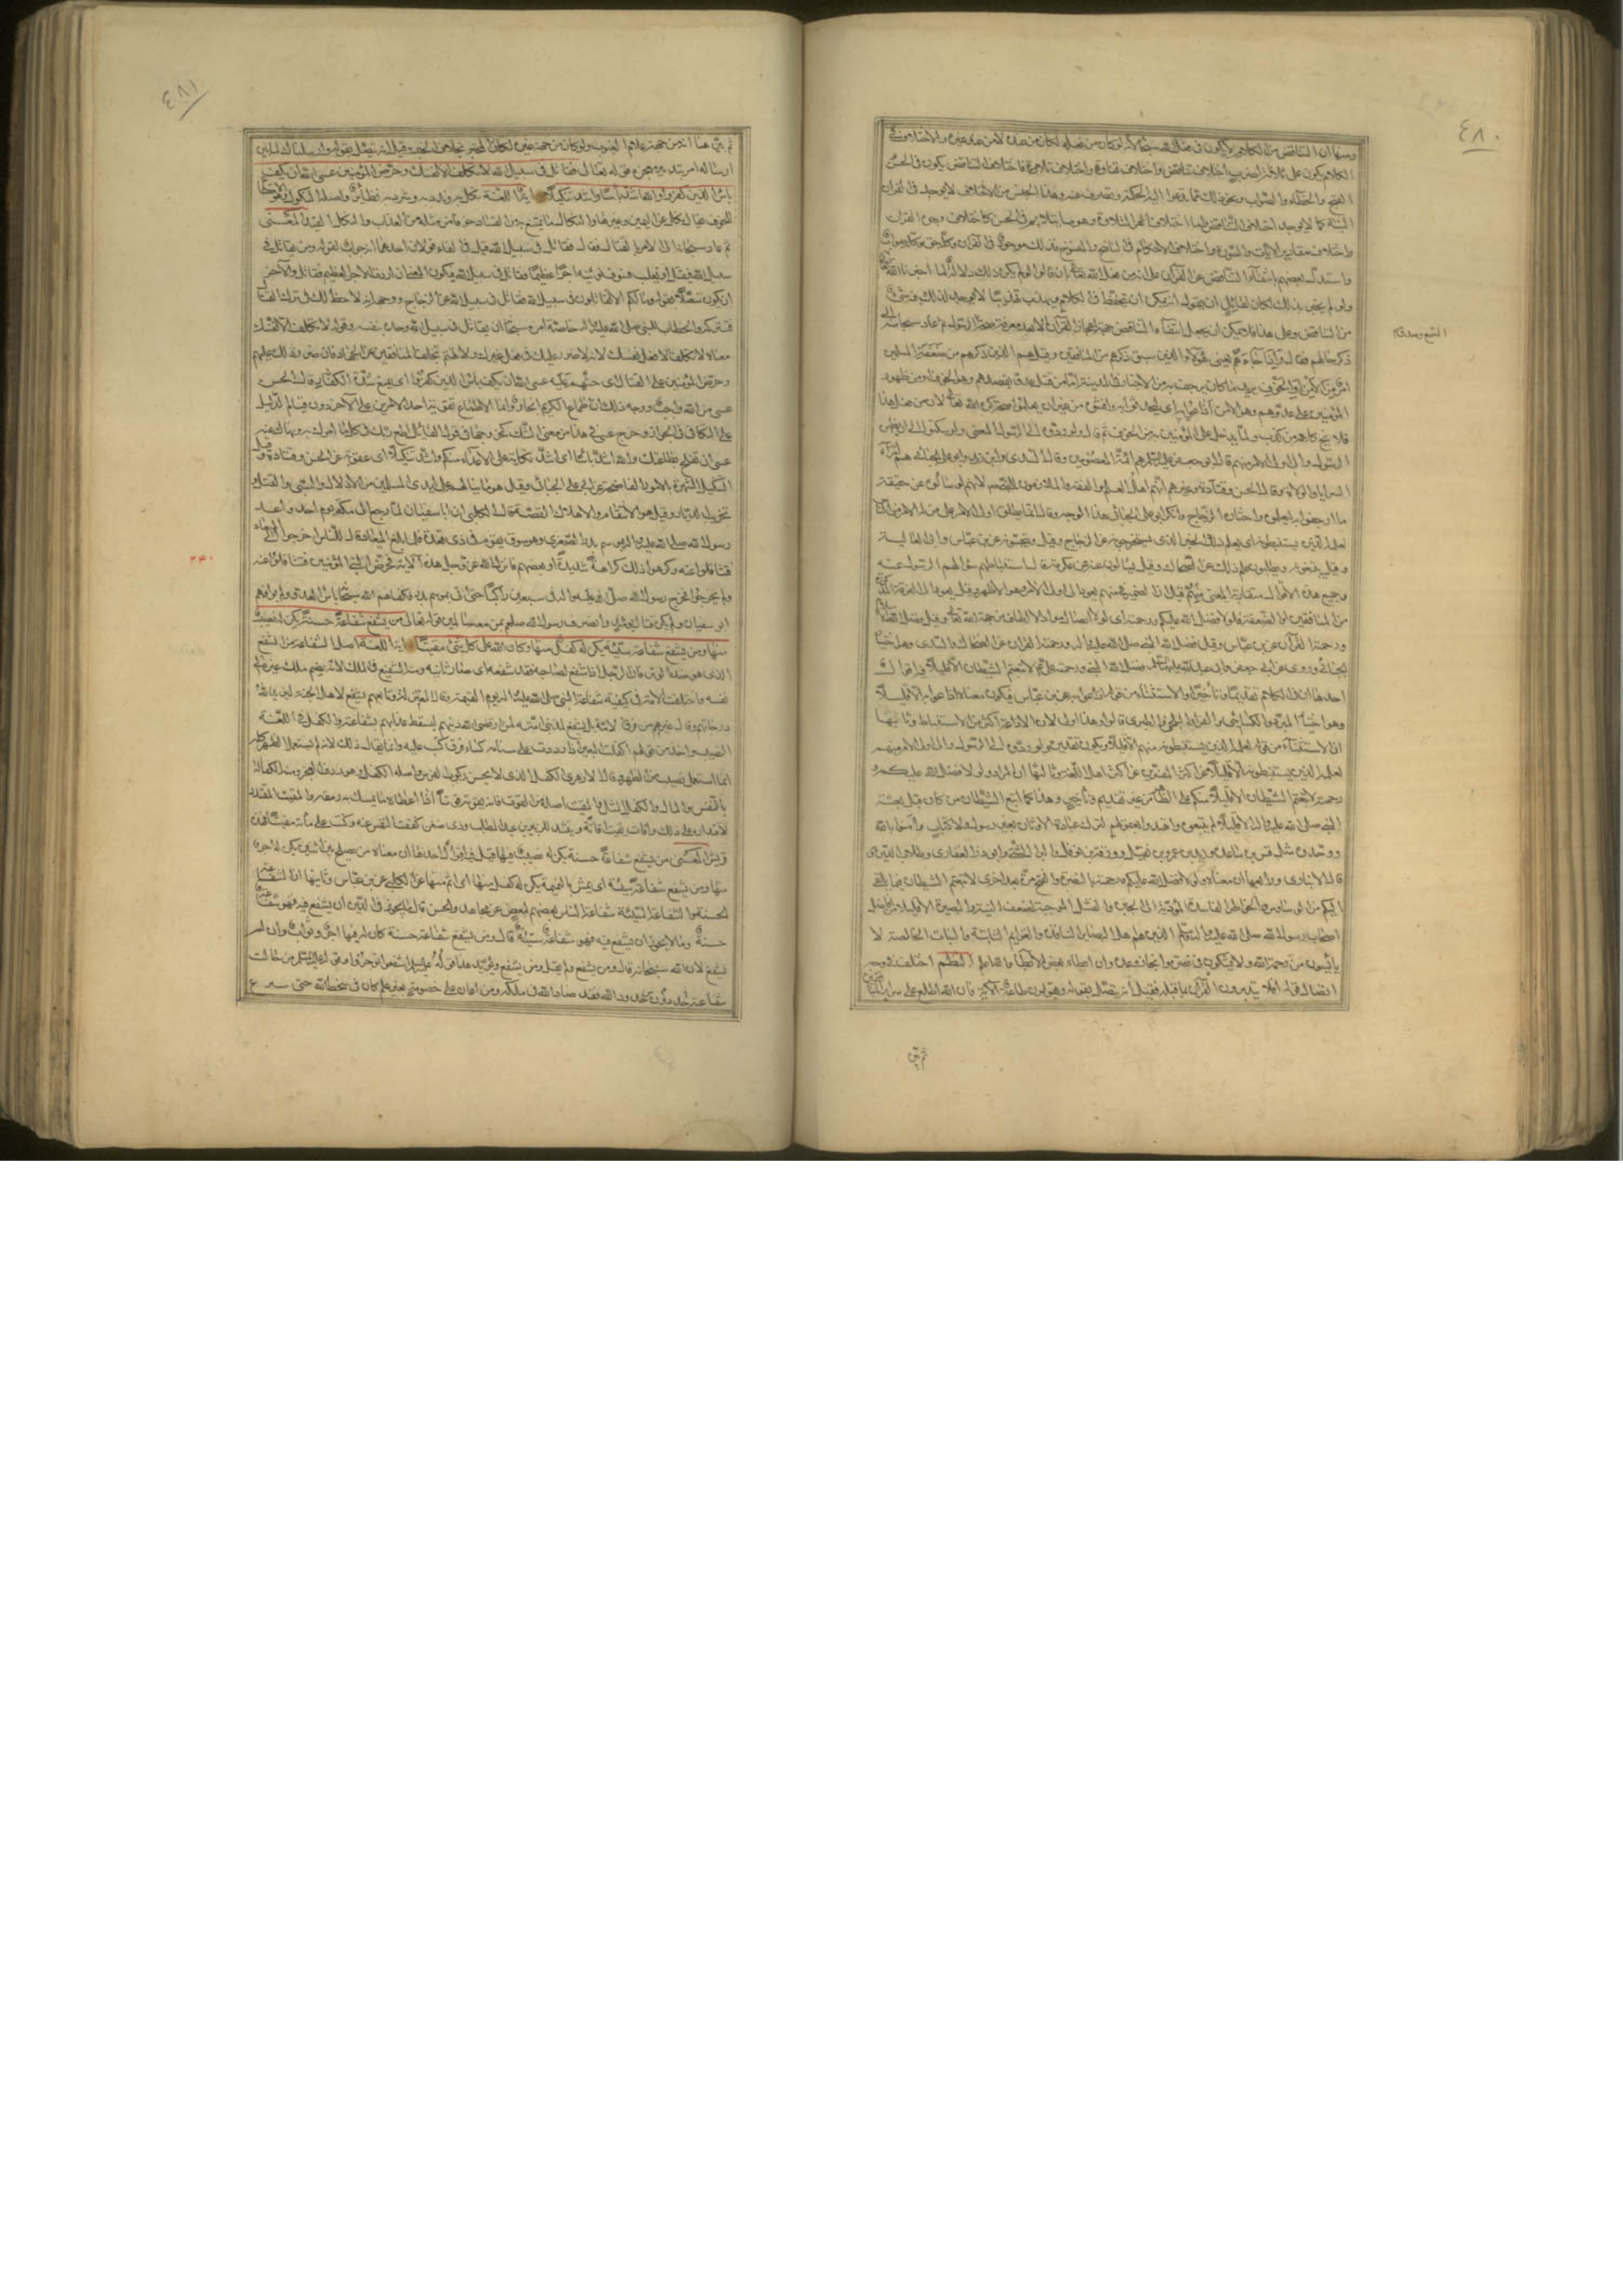 ٤٨٠
ومنها ان المتناقض من الكلام لا يكون من فعل الله سبحانه لانه لو كان من فعله لكان من عنده لا من عند غيره والاختلاف في
الكلام يكون على ثلاثة اضرب اختلاف تناقض واختلاف تفاوت واختلاف تلاوة فاختلاف التناقض يكون في الحسن
القبيح والخطاء والصواب ونحو ذلك مما تدعوا اليه الحكمة وتصرف عنه وهذا الجنس من الاختلاف لا يوجد في القران
البتة كما لا يوجد اختلاف التناقض واما اختلاف التلاوة فهو ما يتلاءم في الحسن كاختلاف وجوه القران
واختلاف مقادير الايات والسور واختلاف الاحكام في الناسخ والمنسوخ فذلك موجود في القرآن وكله حق وكله صواب
واستدل بعضهم بانتفاء التناقض عن القرآن على انه من فعل الله تعالى بان قالوا لو لم يكن ذلك دلالة لما اخبرنا الله به
ولو لم يخبر بذلك لكان لقائل ان يقول انه يمكن ان يتحفظ في الكلام ويهذب تهذيبا لا يوجد لذلك فيه شيء
من التناقض وعلى هذا فلا يمكن ان يجعل انتفاء التناقض جهة اعجاز القرآن الا بعد معرفة صحة السمع وصدق النبي ثم عاد سبحانه الى
ذكر حالهم فقال واذا جاءهم يعني هؤلاء الذين سبق ذكرهم من المنافقين وقيل هم الذين ذكرهم من ضعفة المسلمين
امر من الامن او الخوف يريد ما كان يرجف به من الاخبار في المدينة اما من قبل عدو يقصدهم وهو الخوف او من ظهور
المؤمنين على عدوهم وهو الامن اذاعوا به اي تحدثوا به وافشوه من غير ان يعلموا صحته كره الله تعالى ذلك لان من فعل هذا
فلا يخلو كلامه من كذب ولما يدخل على المؤمنين به من الخوف ثم قال ولو ردوه الى الرسول المعنى ولو سكتوا الى ان يظهره
الرسول والى اولي الامر منهم قال ابو جعفر عليه السلم هم الائمة المعصومون وقال السدي وابن زيد وابو علي الجبائي هم امراء
السرايا والولاة وقال الحسن وقتادة وغيرهم انهم اهل العلم والفقه الملازمون للنبي صلعم لانهم لو سألوهم عن حقيقة
ما ارجفوا به لعلموه واختاره الزجاج وانكر ابو علي الجبائي هذا الوجه وقال انما يطلق اولو الامر على من له الامر على الناس
لعلمه الذين يستنبطونه اي لعلم ذلك الخبر الذين يستخرجونه عن الزجاج وقيل يتحسسونه عن ابن عباس وابي العالية
وقيل يتبعونه ويطلبون علم ذلك عن الضحاك وقيل يسألون عنه عن عكرمة قال استنباطهم سؤالهم الرسول عنه
وجميع هذه الاقوال متقاربة المعنى ثم قيل ان الضمير في منهم يعود الى اولي الامر وهو الاظهر وقيل يعود الى الفرقة المذكورة
من المنافقين او الضعفة ولولا فضل الله عليكم ورحمته اي لولا ايصال مواد الالطاف من جهة الله تعالى وقيل فضل الله الاسلام
ورحمته القرآن عن ابن عباس وقيل فضل الله النبي صلى الله عليه واله ورحمته القران عن الضحاك والسدي وهو اختيار
الجبائي وروي عن ابي جعفر وابي عبد الله عليهما السلم فضل الله النبي ورحمته علي ع لاتبعتم الشيطان الا قليلا فيه اقوال
احدها ان في الكلام تقديما وتأخيرا والاستثناء من قوله اذاعوا به عن ابن عباس فيكون معناه اذاعوا به الا قليلا
وهو اختيار المبرد والكسائي والفراء والبلخي والطبري قالوا وهذا اولى لان الاذاعة اكثر من الاستنباط وثانيها
ان الاستثناء من قوله لعلمه الذين يستنبطونه منهم الا قليلا ويكون تقديره ولو ردوه الى الرسول والى اولي الامر منهم
لعلمه الذين يستنبطونه الا قليلا عن اكثر المفسرين عن اكثر اهل اللغة وثالثها ان المراد ولولا فضل الله عليكم و
رحمته لاتبعتم الشيطان الا قليلا منكم على الظاهر من غير تقديم وتأخير وهذا كما اتبع الشيطان من كان قبل بعثة
النبي صلى الله عليه واله الا قليلا لم يتبعوه واهتدوا بعقولهم لترك عبادة الاوثان بغير رسول ولا كتاب وآمنوا بالله
ووحدوه مثل قس بن ساعدة وزيد بن عمرو بن نفيل وورقة بن نوفل والبراء الشني وابو ذر الغفاري وطلاب الدين
قاله الانباري ورابعها ان معناه ولولا فضل الله عليكم ورحمته بالنصرة والفتح مرة بعد اخرى لاتبعتم الشيطان فيما يلقي
اليكم من الوساوس والخواطر الفاسدة المؤدية الى الجبن والفشل الموجبة لضعف النية والبصيرة الا قليلا من افاضل
اصحاب رسول الله صلى الله عليه واله وسلم الذين هم اهل البصائر النافذة والعزائم الثابتة والنيات الخالصة لا
يائسون من رحمة الله ولا يشكون في نصرته وانجاز وعده وان ابطاء بعض الابطاء والله اعلم النظم اختلف في وجه
اتصال قوله افلا يتدبرون القرآن بما قبله فقيل انه يتصل بقوله ويقولون طاعة الآية فان الله المطلع على سرائر المنافقين
ثم بين
٤٨١
ثم بين هنا انه من جهة علام الغيوب ولو كان من جهة غيره لكان المخبر بخلاف الخبر وقيل انه يتصل بقوله وارسلناك للناس
ارسالة امر بتدبر معجزه قوله تعالى فقاتل في سبيل الله لا تكلف الا نفسك وحرض المؤمنين عسى الله ان يكف
بأس الذين كفروا والله اشد بأسا واشد تنكيلا آية اللغة نكل به وندد به وشرد به نظائر واصله النكول وهو الامتناع
للخوف يقال نكل عن اليمين وغيرها والنكال ما يمتنع به من الفساد خوفا من مثله من العذاب والنكل القيد المعنى
ثم عاد سبحانه الى الامر بالقتال فقال فقاتل في سبيل الله قيل في الفاء قولان احدهما انه جواب لقوله ومن يقاتل في
سبيل الله فيقتل او يغلب فسوف نؤتيه اجرا عظيما فقاتل في سبيل الله فيكون المعنى ان اردت الاجر العظيم فقاتل والآخر
ان يكون متصلا بقوله وما لكم لا تقاتلون في سبيل الله فقاتل في سبيل الله عن الزجاج ووجهه انه لا حظ لك في ترك القتال
فتتركه والخطاب للنبي صلى الله عليه واله خاصة امره سبحانه ان يقاتل في سبيل الله وحده بنفسه وقوله لا تكلف الا نفسك
معناه لا تكلف الا فعل نفسك لانه لا ضرر عليك في فعل غيرك ولا تهتم بتخلف المنافقين عن الجهاد فان ضرر ذلك عليهم
وحرض المؤمنين على القتال اي حثهم عليه عسى الله ان يكف بأس الذين كفروا اي يمنع شدة الكفار قال الحسن
عسى من الله واجب ووجه ذلك ان اطماع الكريم انجاز وانما الاطماع تقوية احد الامرين على الآخر دون قيام الدليل
على التكافي في الجواز وخرج عسى في هذا من معنى الشك كخروجها في قول القائل اطع ربك في كل ما امرك به ونهاك عنه
عسى ان تفلح بطاعتك والله اشد بأسا اي اشد نكاية على الاعداء منكم واشد تنكيلا اي عقوبة عن الحسن وقتادة وقيل
التنكيل الشهرة بالامور الفاضحة عن ابي علي الجبائي وقيل هو ما ينالهم على ايدي المسلمين من الاذلال والسبي والقتل و
تخريب الديار وقيل هو الانتقام والاهلاك القصة قال الكلبي ان ابا سفيان لما رجع الى مكة يوم احد واعد
رسول الله صلى الله عليه واله موسم بدر الصغرى وهو سوق يقوم في ذي القعدة فلما بلغ الميعاد قال للناس اخرجوا الى الميعاد
فتثاقلوا عنه وكرهوا ذلك كراهة شديدة او بعضهم فانزل الله عز وجل هذه الآية فحرض النبي المؤمنين فتثاقلوا عنه
ولم يخرجوا فخرج رسول الله صلى الله عليه واله في سبعين راكبا حتى اتى موسم بدر فكفاهم الله سبحانه بأس العدو ولم يوافهم
ابو سفيان ولم يكن قتال يومئذ وانصرف رسول الله صلعم بمن معه سالمين قوله تعالى من يشفع شفاعة حسنة يكن له نصيب
منها ومن يشفع شفاعة سيئة يكن له كفل منها وكان الله على كل شيء مقيتا آية اللغة اصل الشفاعة من الشفع
الذي هو ضد الوتر فان الرجل اذا شفع لصاحبه فقد شفعه اي صار ثانيه ومنه الشفيع في الملك لانه يضم ملك غيره الى
نفسه واختلفت الامة في كيفية شفاعة النبي صلى الله عليه واله يوم القيمة وقال المعتزلة ومن تابعهم يشفع لاهل الجنة ليزيد الله
درجاتهم وقال غيرهم من فرق الامة بل يشفع لمذنبي امته لمن ارتضى الله دينهم ليسقط عقابهم بشفاعته والكفل في اللغة
النصيب واخذ من قولهم اكتفلت البعير اذا ادرت على سنامه كساء وركبت عليه وانما يقال ذلك لانه لم يستعمل الظهر كله
انما استعمل نصيب من الظهر وقال الازهري الكفل الذي لا يحسن ركوب الفرس واصله الكفل وهو ردف العجز ومنه الكفالة
بالنفس والمال والكفل المثل والمقيت اصله من القوت فانه يقوته قوتا اذا اعطاه ما يمسك به رمقه والمقيت المقتدر
لاقتداره على ذلك واقات يقيت اقاتة وينشد للزبير بن عبد المطلب وذي ضغن كففت النفس عنه وكنت على مساءته مقيتا فذ
قريش المعنى من يشفع شفاعة حسنة يكن له نصيب منها قيل فيه اقوال احدها ان معناه من يصلح بين اثنين يكن له اجر
منها ومن يشفع شفاعة سيئة اي يمش بالنميمة يكن له كفل منها اي اثم منها عن الكلبي عن ابن عباس وثانيها ان الشفاعة
الحسنة والشفاعة السيئة شفاعة الناس بعضهم لبعض عن مجاهد والحسن قال ما يجوز في الدين ان يشفع فيه فهو شفاعة
حسنة وما لا يجوز ان يشفع فيه فهو شفاعة سيئة قال ومن يشفع شفاعة حسنة كان له فيها اجر وثواب وان لم
يشفع لان الله سبحانه قال ومن يشفع ولم يقل ومن يشفع ويؤيد هذا قوله عليه السلم اشفعوا تؤجروا وقوله عليه السلم من حالت
شفاعته دون حد من حدود الله فقد ضاد الله في ملكه ومن اعان على خصومة بغير علم كان في سخط الله حتى ينزع